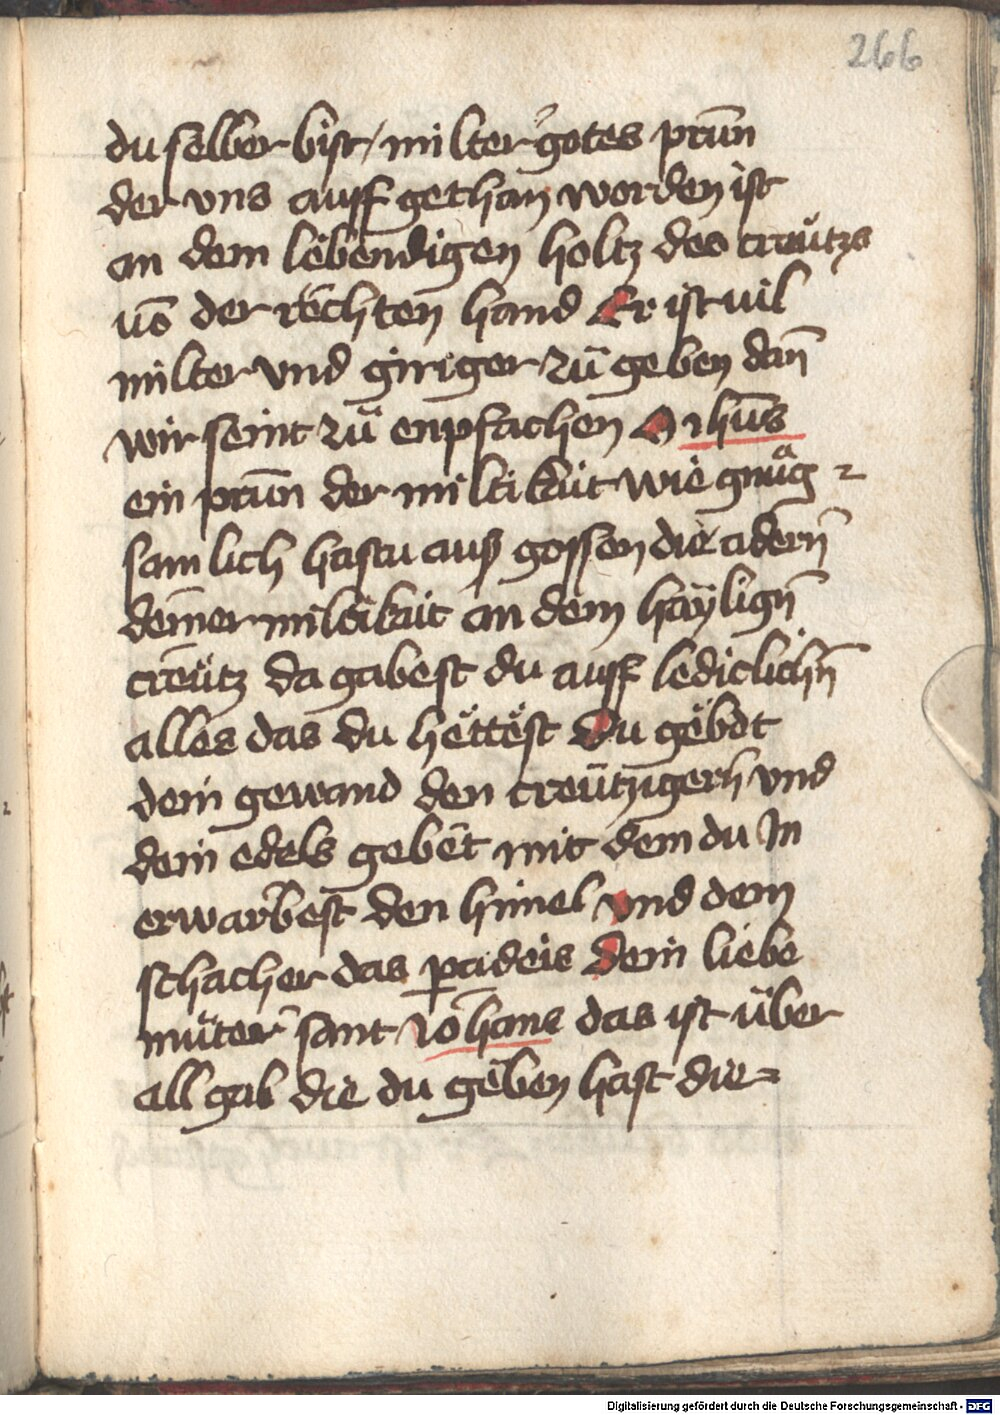 266
du selber bist / milter gotes prūn
der vns auff gethan worden ist
an dem lebendigen holtz des creütz
vō der rechten hand Er ist vil
milter vnd giriger zü geben dañ
wir seint zü enpfachen O ihūs
ein prūn der miltikait wie gnůg
sam lich hastu auß gossen die adern̄
deīner miltikait an dem haÿlign̄
creütz da gabest du auff lediclichn̄
alles das du hettest Du gebdt
dein gewand den creützigern vnd
dein edels gebet mit dem du In
erwarbest den himel vnd dem
schacher das padeis Dein liebe
müter sant Iohans das ist über
all gab die du geben hast die
Digitalisierung gefördert durch die Deutsche Forschungsgemeinschaft - DFG